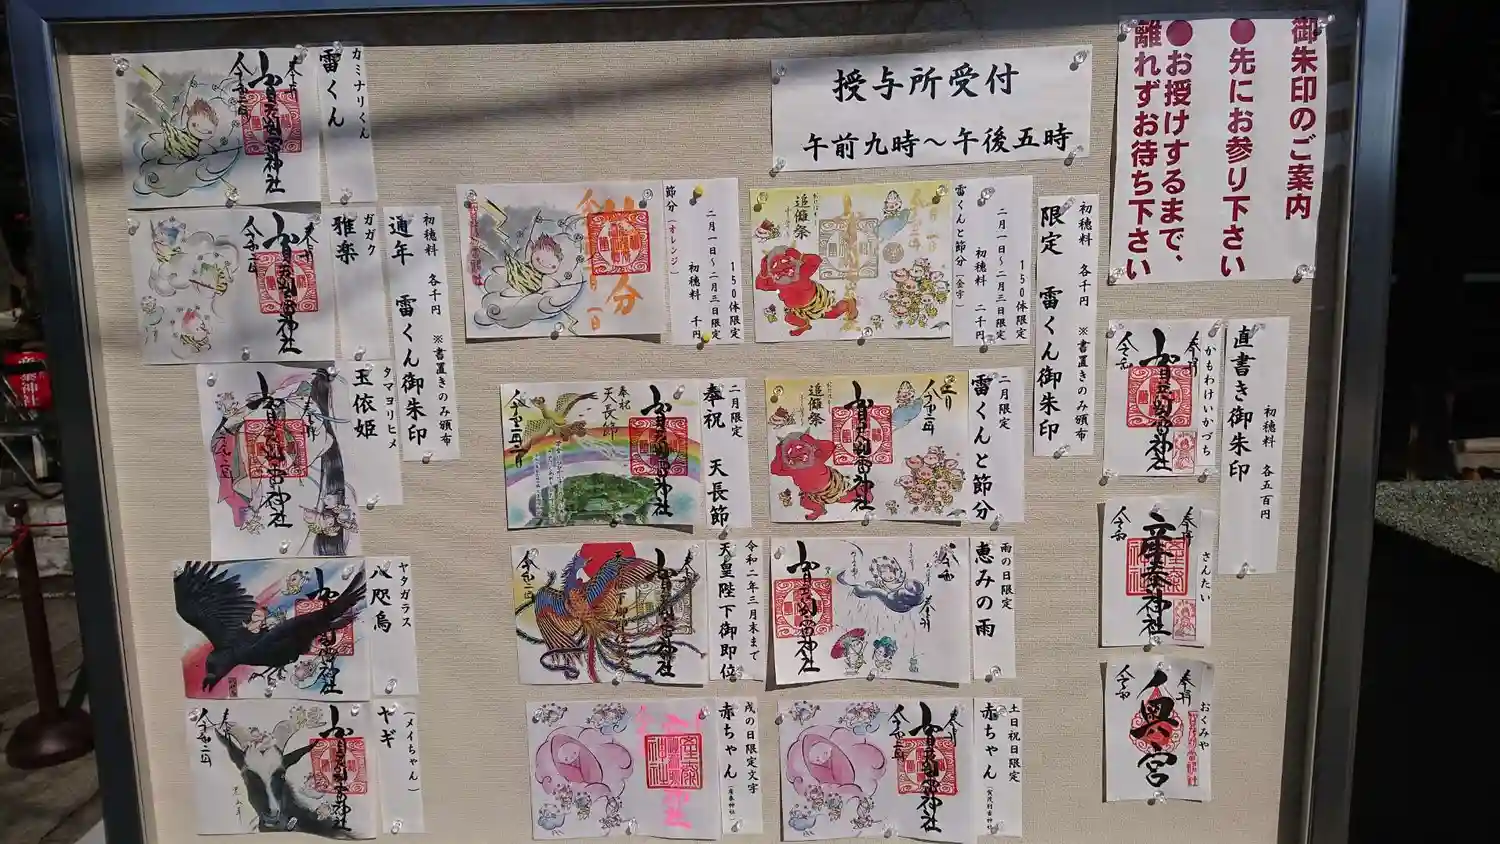 御朱印のご案内
●先にお参り下さい
●お授けするまで、
離れずお待ち下さい
授与所受付
午前九時～午後五時
初穂料 各五百円
直書き御朱印
かもわけいかづち
奉拝
さんたい
産泰神社
奉拝
令和
おくみや
奥宮
奉拝
令和
初穂料 各千円 ※書置きのみ頒布
限定 雷くん御朱印
150体限定
二月一日～二月三日限定
初穂料 二千円
雷くんと節分(金字)
追儺祭
150体限定
二月一日～二月三日限定
初穂料 千円
節分(オレンジ)
二月限定
雷くんと節分
追儺祭
二月限定
奉祝 天長節
奉祝
天長節
雨の日限定
恵みの雨
令和二年三月末まで
天皇陛下御即位
土日祝日限定
赤ちゃん
(賀茂別雷神社)
戌の日限定文字
赤ちゃん
(産泰神社)
初穂料 各千円 ※書置きのみ頒布
通年 雷くん御朱印
カミナリくん
雷くん
ガガク
雅楽
タマヨリヒメ
玉依姫
ヤタガラス
八咫烏
(メイちゃん)
ヤギ